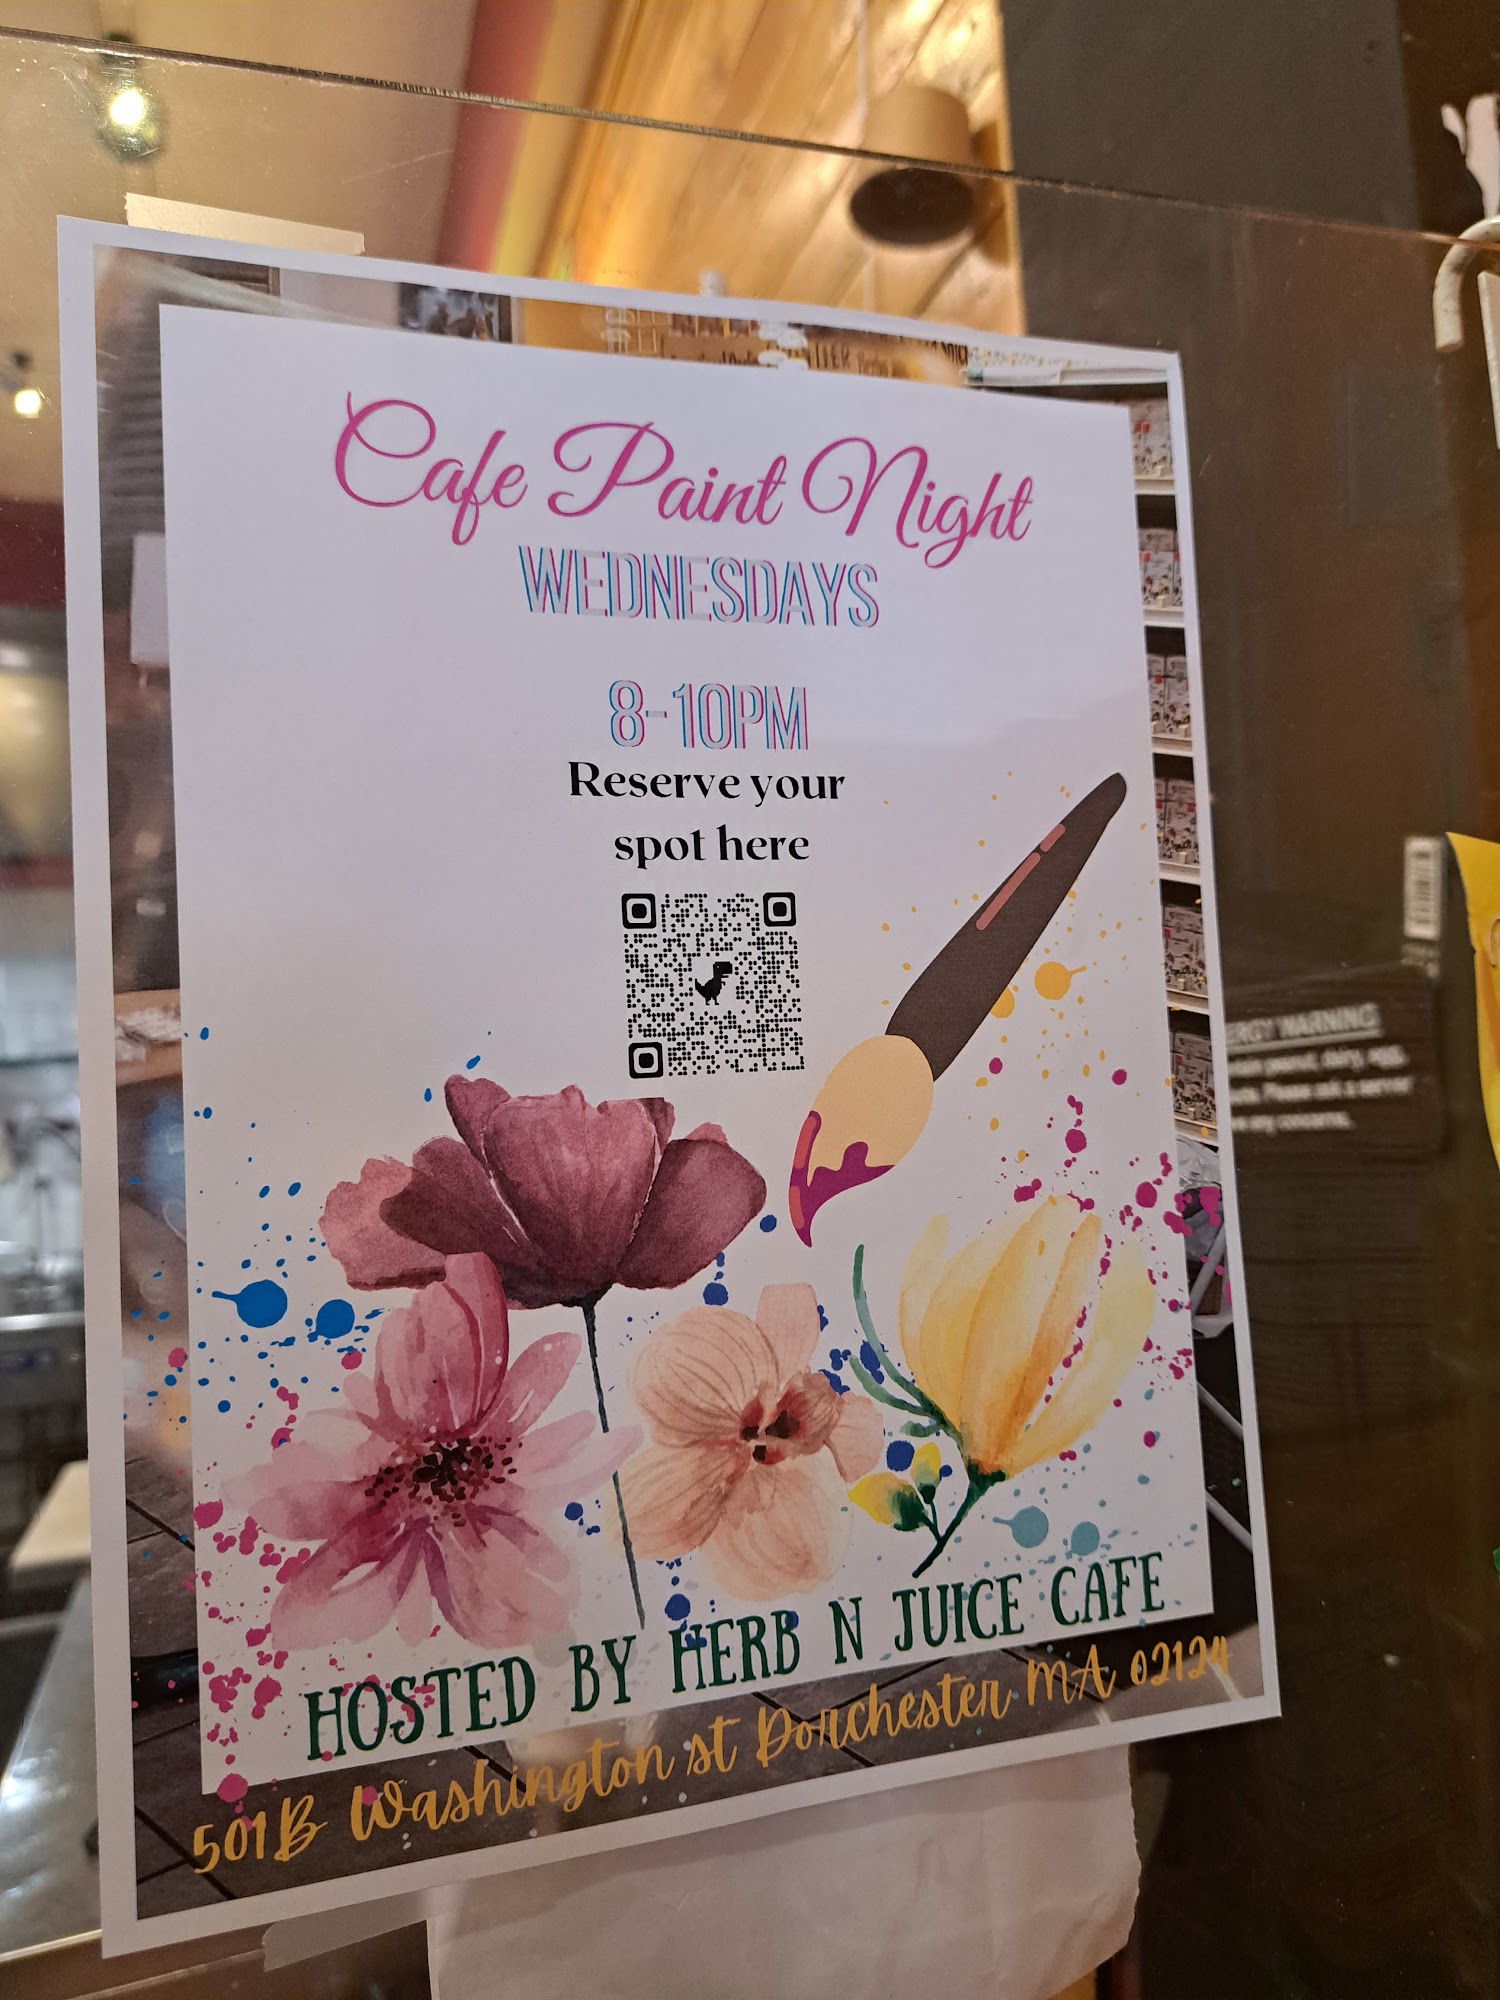 Cafe Paint Night
WEDNESDAYS
8-10PM
Reserve your
spot here
HOSTED BY HERB N JUICE CAFE
501B Washington st Dorchester MA 02124
WARNING
peanut, dairy, egg,
Please ask a server
any concerns.